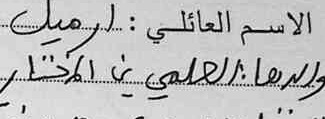 الاسم العائلي : ارميل
والدها : العلمي بن المختار